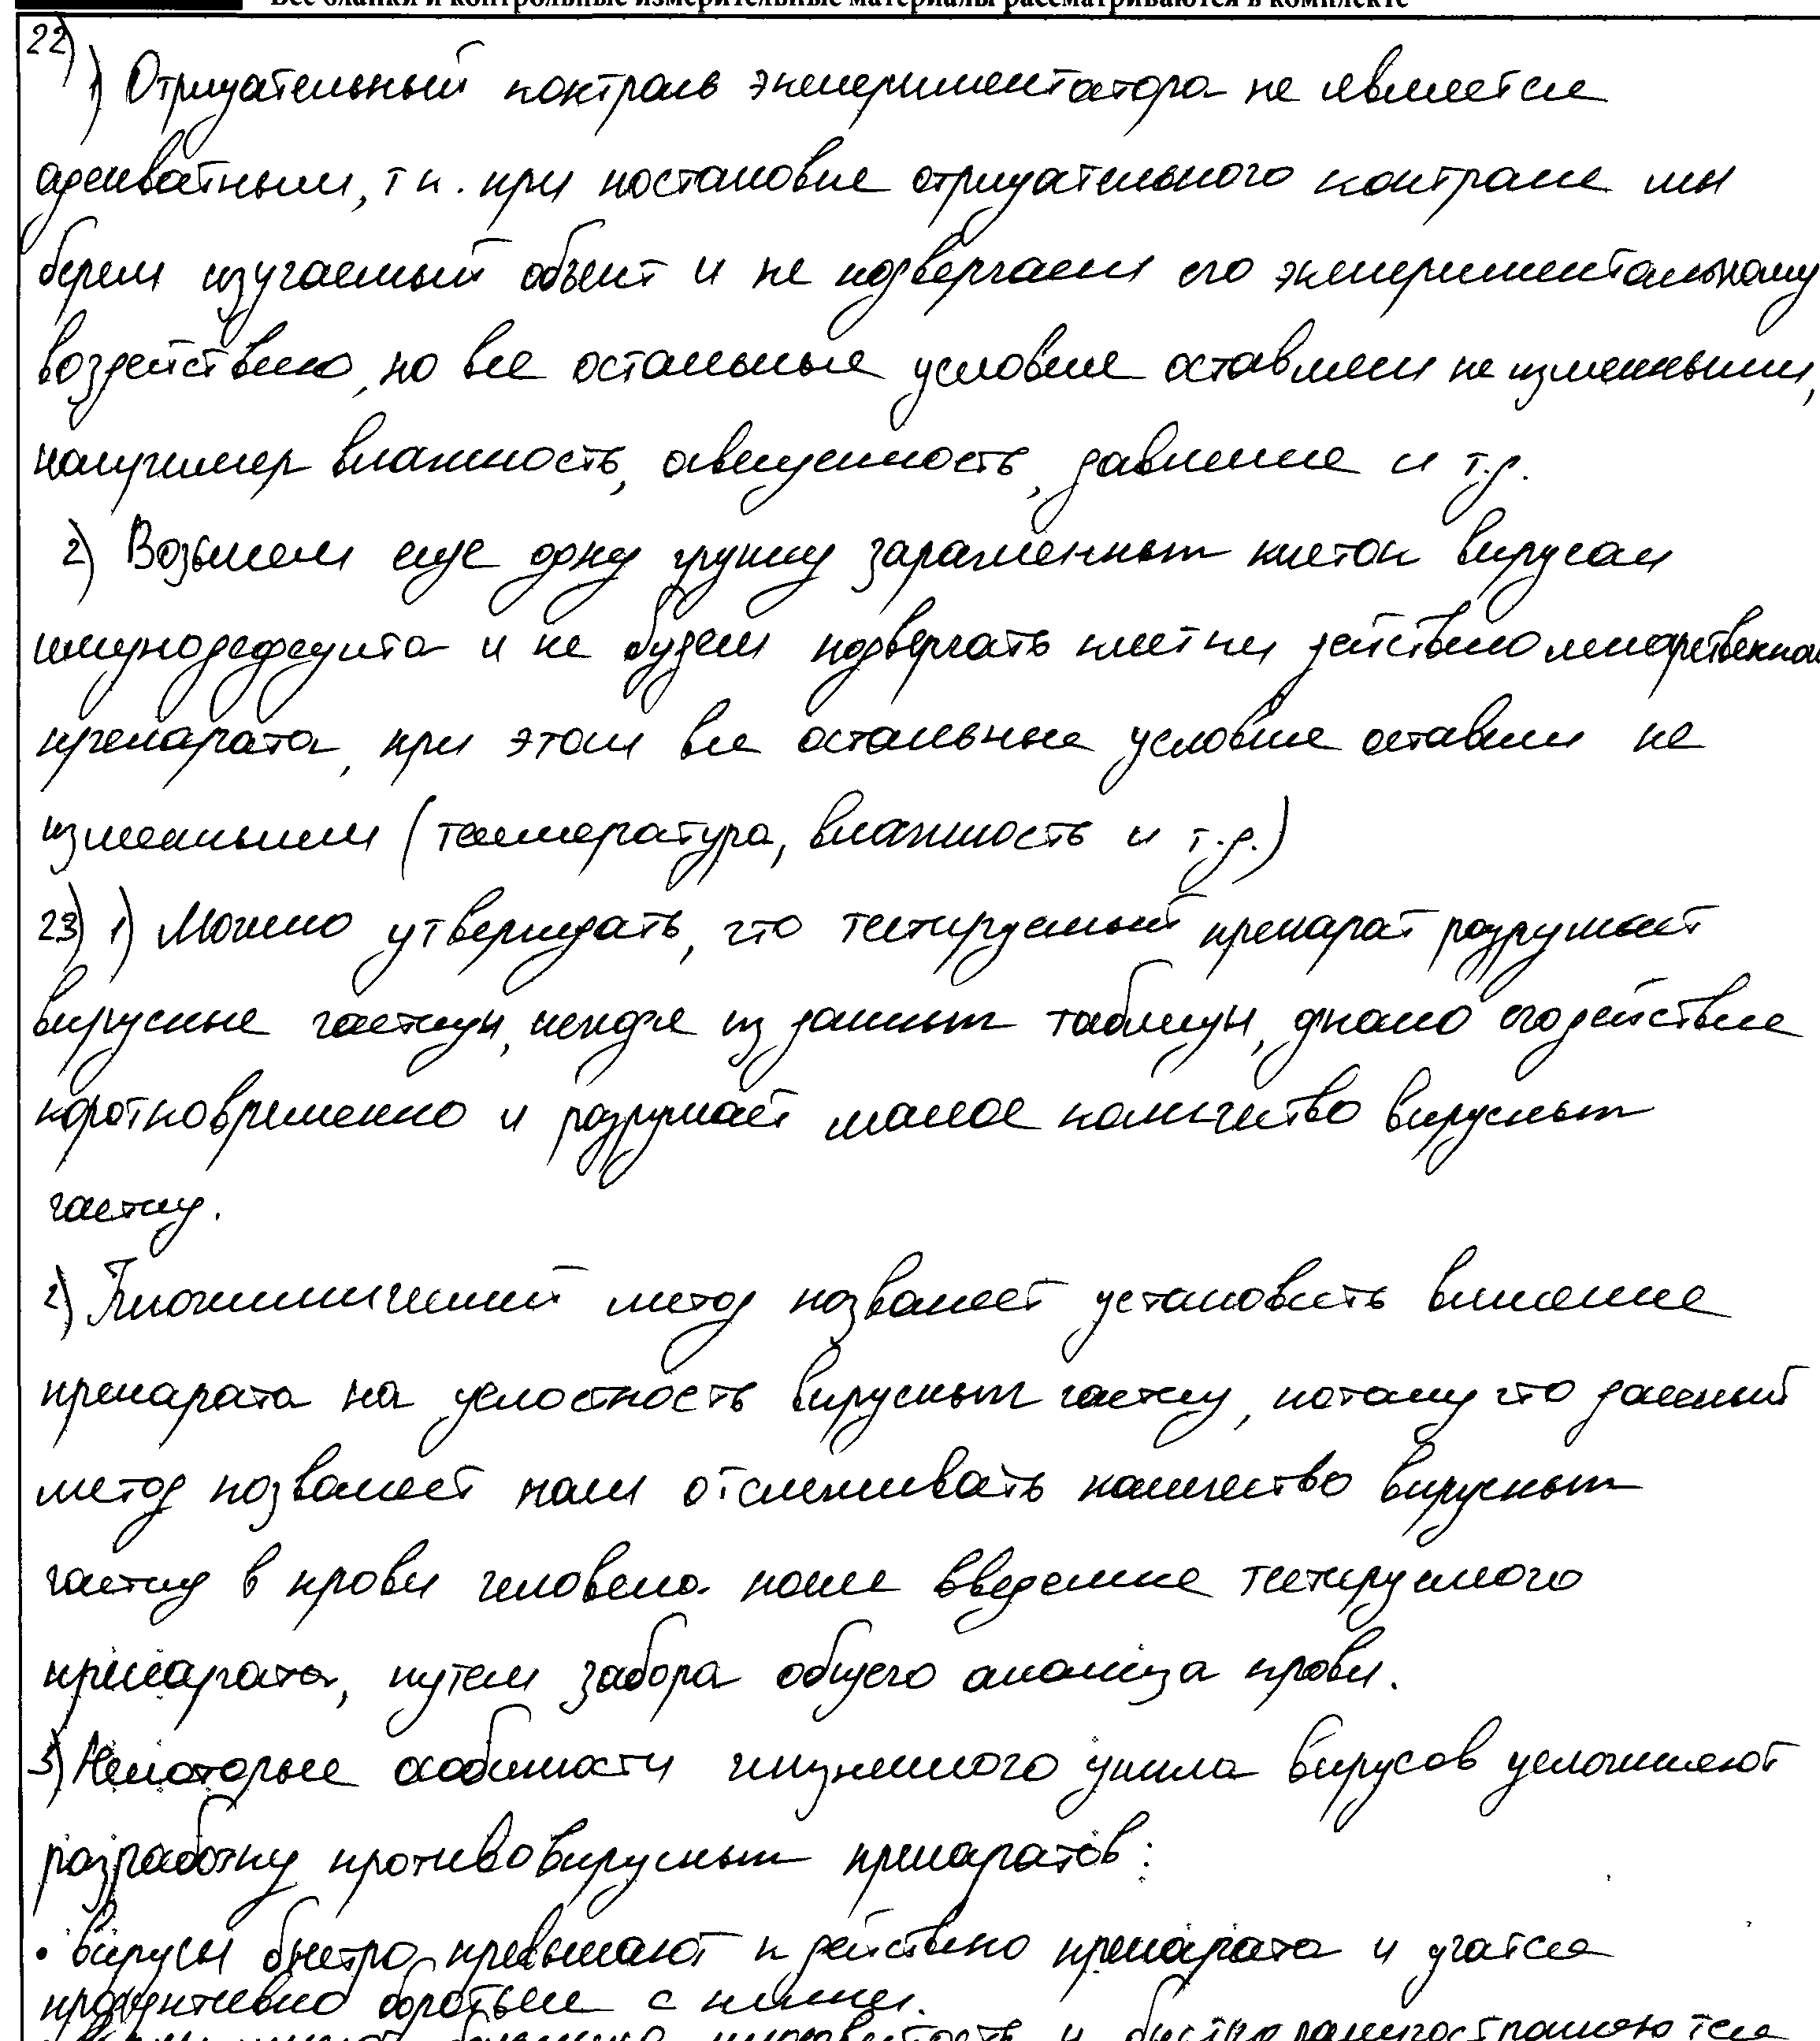 Все бланки и контрольные измерительные материалы рассматриваются в комплекте
22)
1) Отрицательный контроль экспериментатора не является
адекватным, т к. при постановке отрицательного контроля мы
берем изучаемый объект и не подвергаем его экспериментальному
воздействию, но все остальные условие оставляем не изменными,
например влажность, освещенность, давление и т.д.
2) Возьмем еще одну группу зараженных клеток вирусом
имунодефецита и не будем подвергать клетки действию лекарственного
препарата, при этом все остальные условие оставим не
изменными (температура, влажность и т.д.)
23) 1) Можно утверждать, что тестируемый препарат разрушает
вирусные частицы, исходя из данных таблицы, однако его действие
коротковременно и разрушает малое количество вирусных
частиц.
2) Биохимический метод позволяет установить влияние
препарата на целостность вирусных частиц, потому что данный
метод позволяет нам отслеживать количество вирусных
частиц в крови человека после введение тестируемого
препарата, путем забора общего анализа крови.
3) Некоторые особенности жизненного цикла вирусов усложняют
разработку противовирусных препаратов:
• вирусы быстро привыкают к действию препарата и учатся
продуктивно бороться с ними.
и быстро распространяются